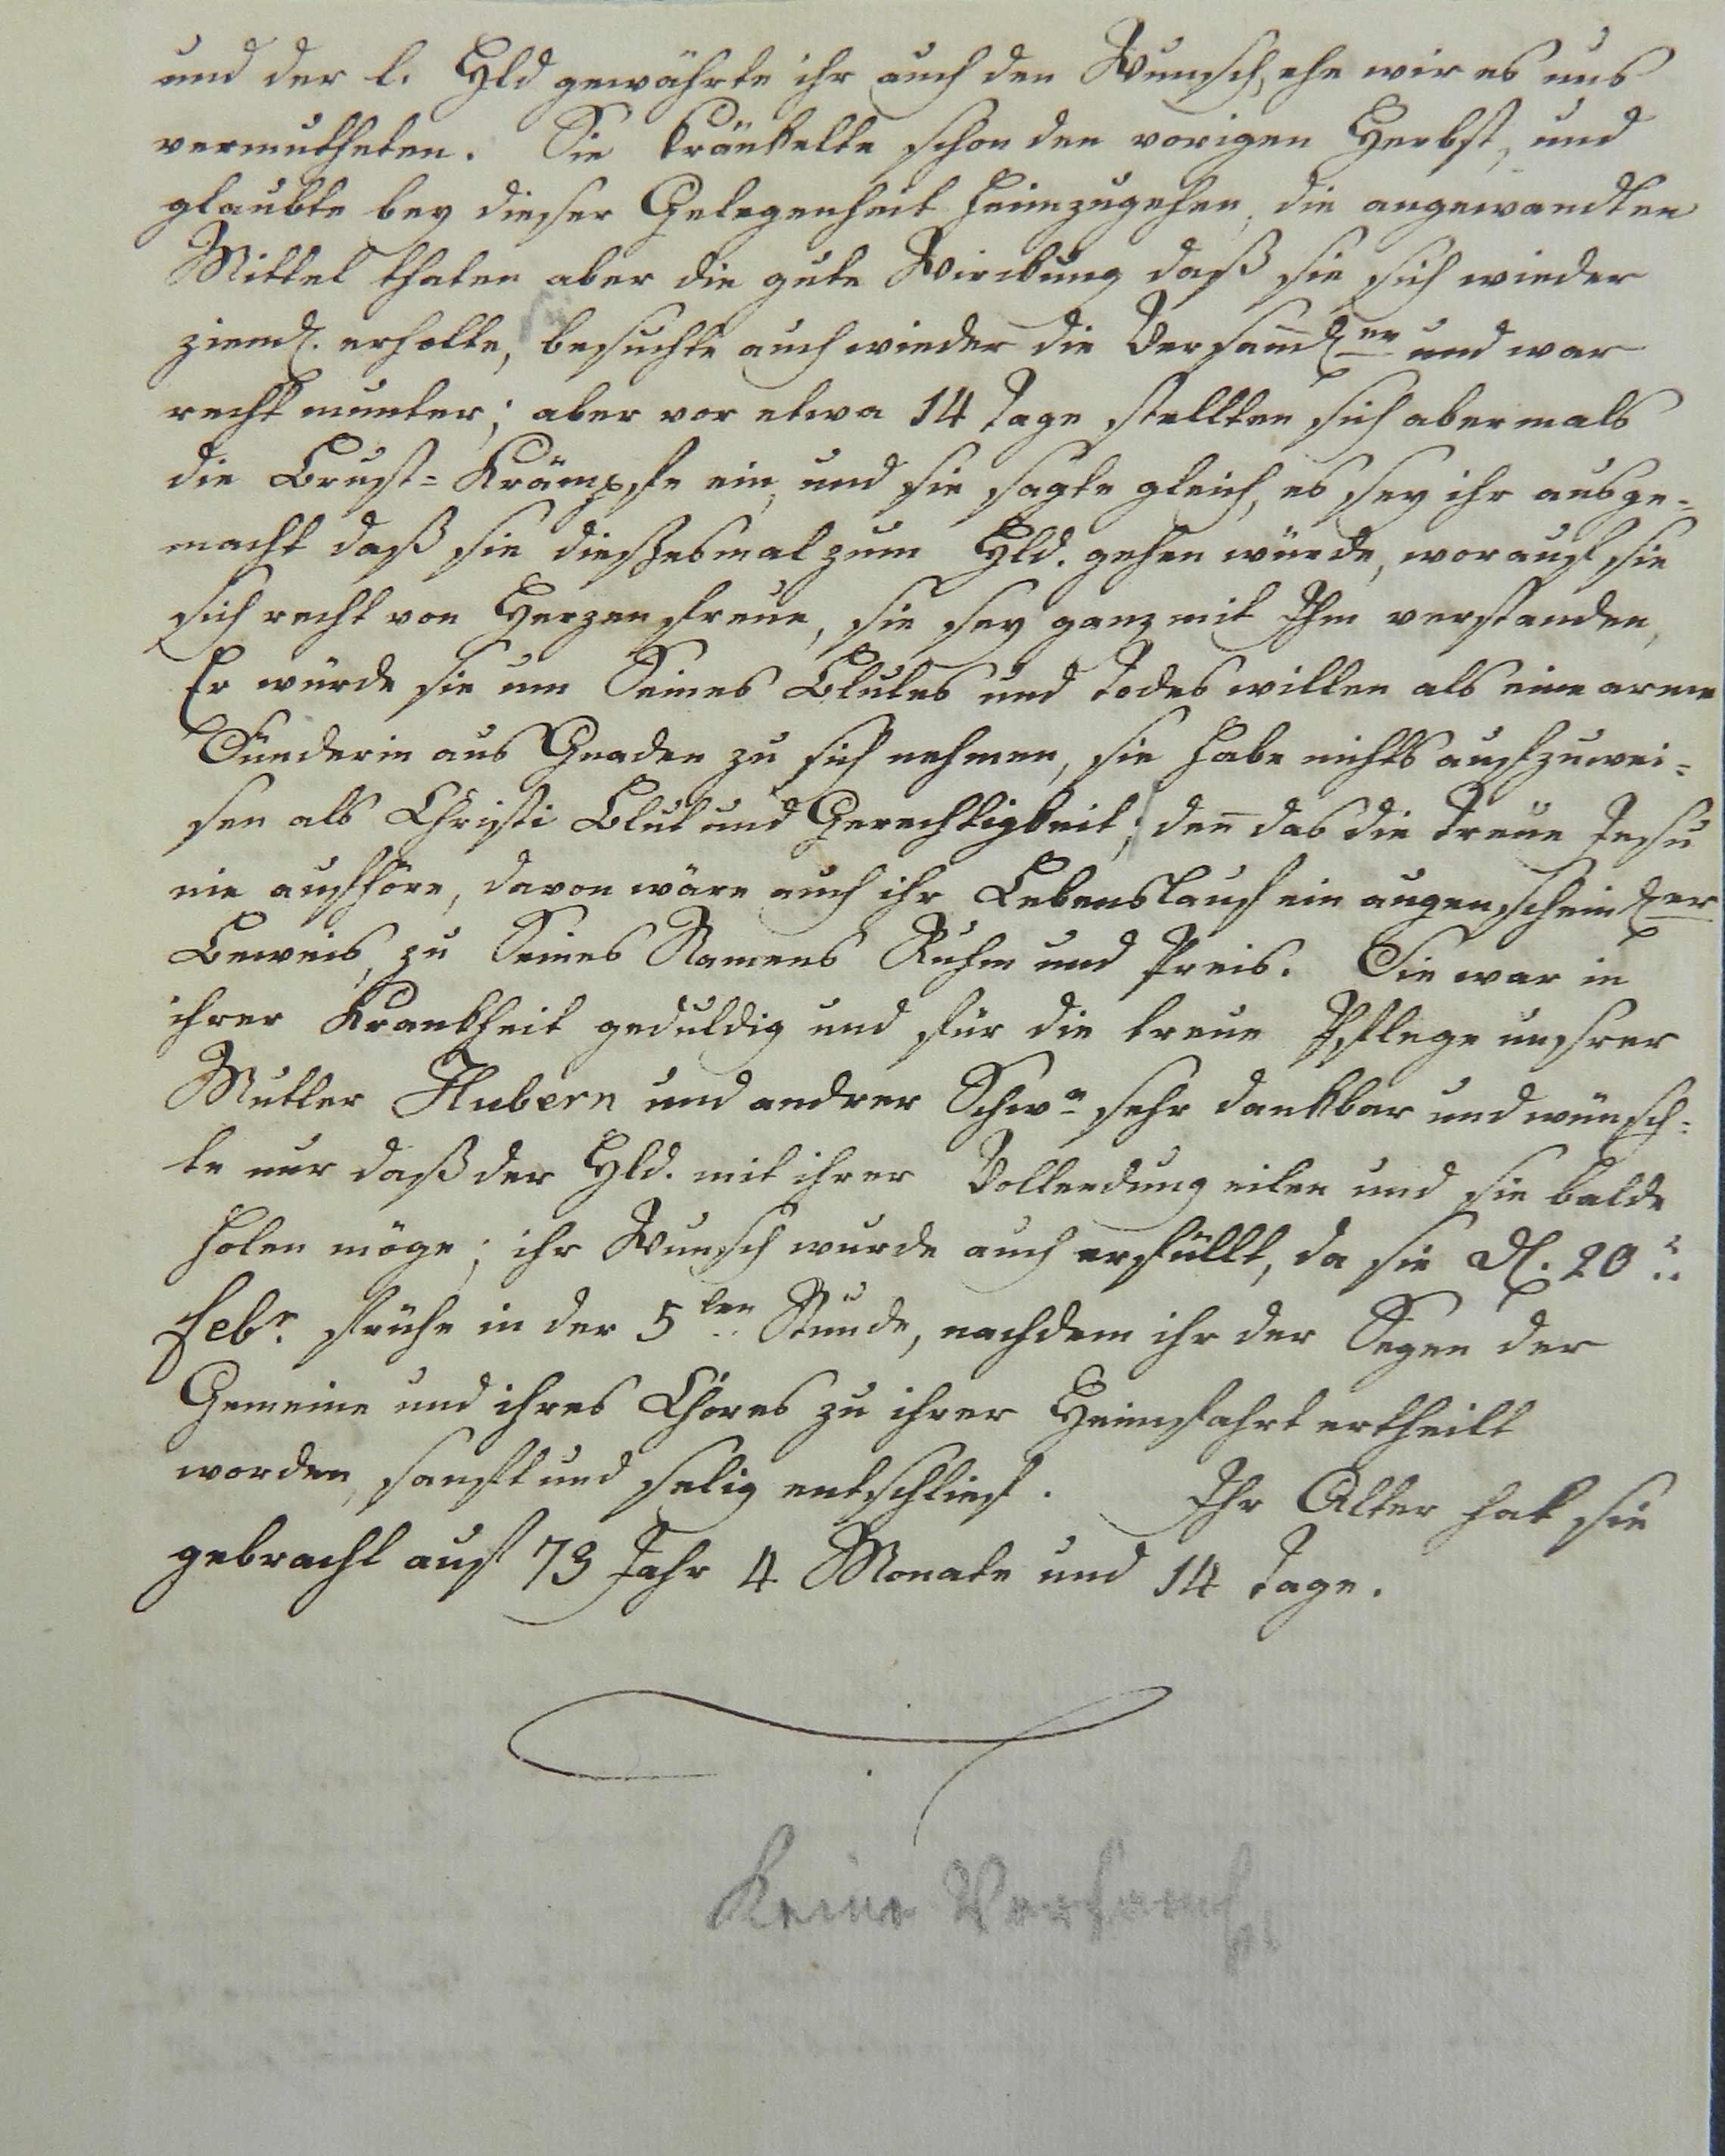 und der l. Hld gewährte ihr auch den Wunsch, ehe wir es uns
vermutheten. Sie kränkelte schon den vorigen Herbst, und
glaubte bey dieser Gelegenheit heimzugehen, die angewandten
Mittel thaten aber die gute Wirckung daß sie sich wieder
ziemL. erholte, sie besuchte auch wieder die Versam̄Lnen und war
recht munter; aber vor etwa 14 Tage stellten sich abermals
die Brust-Krämpfe ein, und sie sagte gleich, es sey ihr ausge-
macht daß sie dieszesmal zum Hld. gehen würde, worauf sie
sich recht von Herzen freue, sie sey ganz mit Ihm verstanden,
Er würde sie um Seines Blutes und Todes willen als eine arme
Sünderin aus Gnaden zu sich nehmen, sie habe nichts aufzuwei-
sen als Christi Blut und Gerechtigkeit; den̄ das die Treue Jesu
nie aufhöre, davon wäre auch ihr Lebenslauf ein augenscheinLer
Beweis, zu Seines Namens Ruhm und Preis. Sie war in
ihrer Krankheit geduldig und für die treue Pflege unsrer
Mutter Hubern und andrer Schwn sehr dankbar und wünsch-
te nur daß der Hld. mit ihrer Vollendung eilen und sie balde
holen möge; ihr Wunsch wurde auch erfüllt, da sie d. 20t
Febr. frühe in der 5ten Stunde, nachdem ihr der Segen der
Gemeine und ihres Chores zu ihrer Heimfahrt ertheilt
worden, sanft und selig entschlief. Ihr Alter hat sie
gebracht auf 73 Jahr 4 Monate und 14 Tage.
Keine